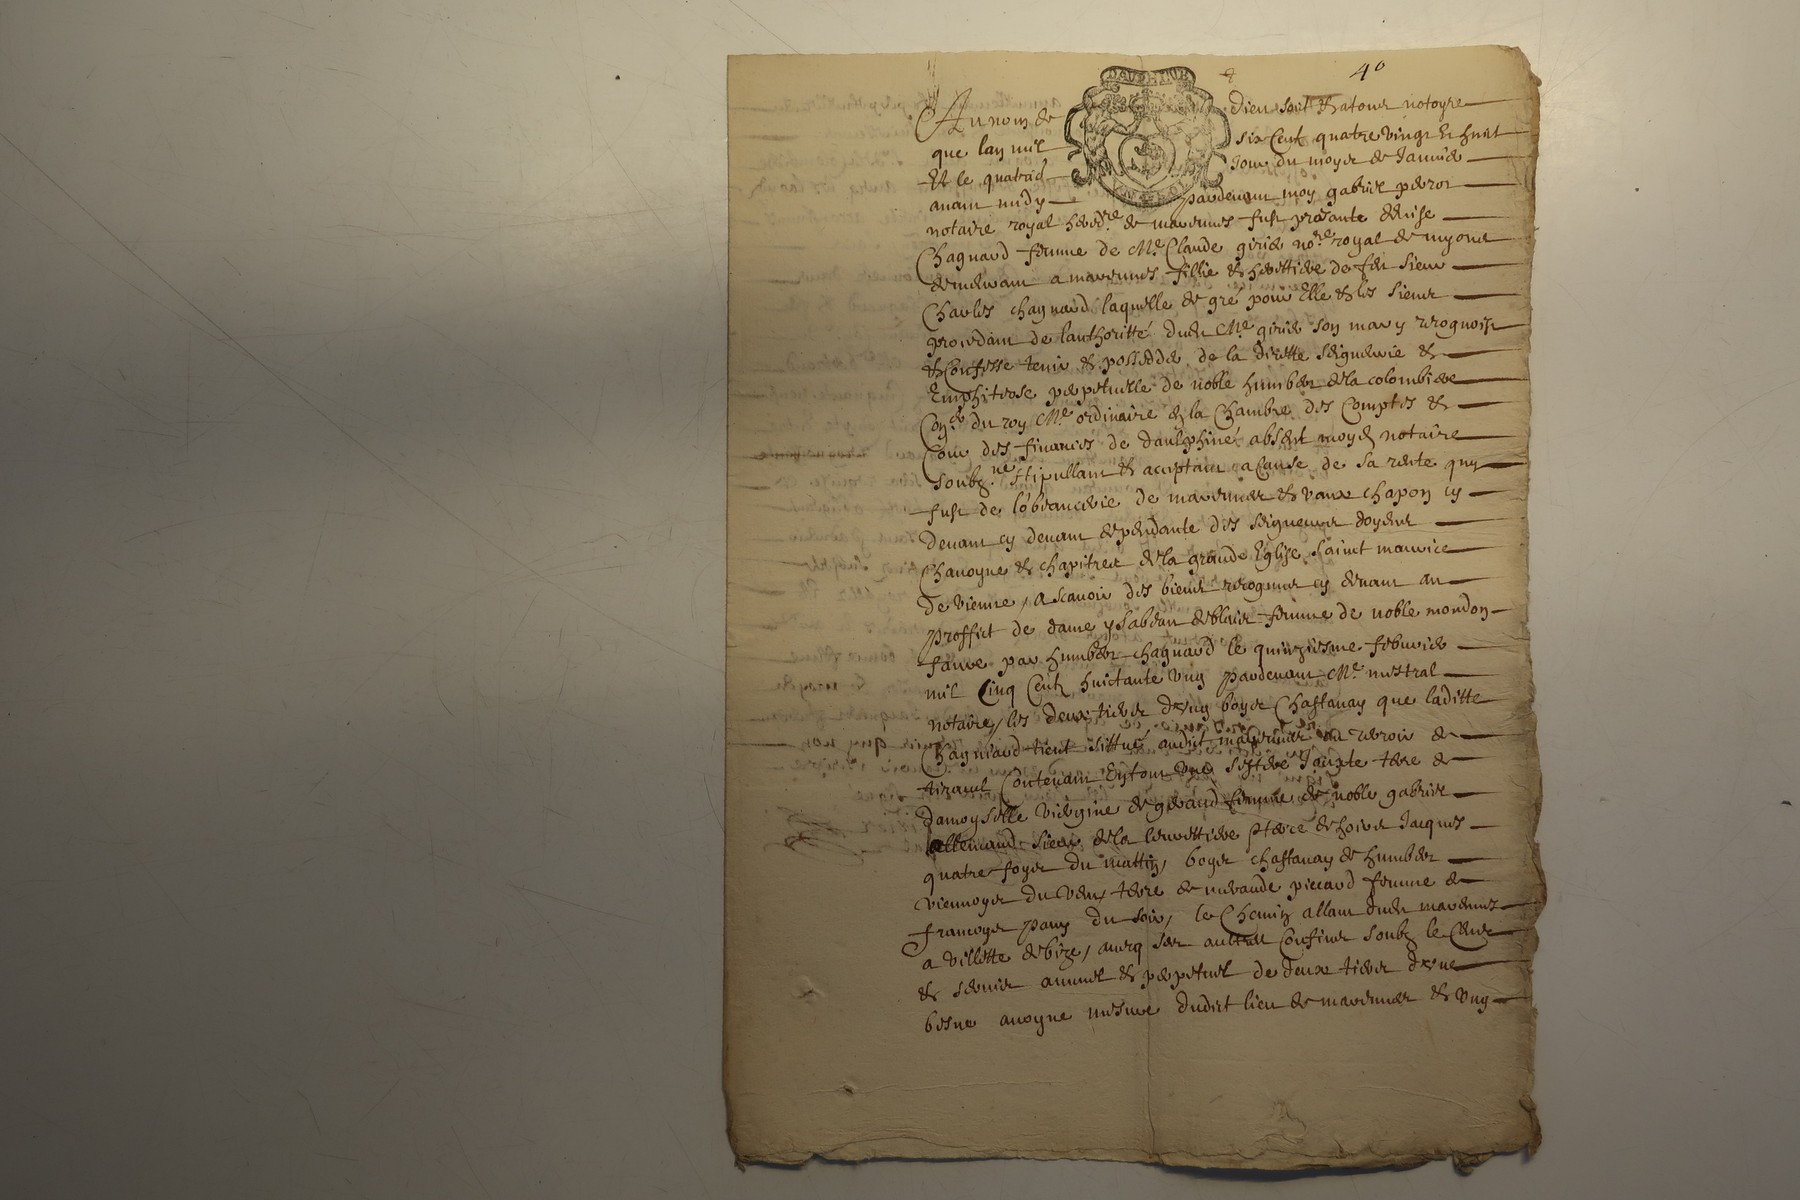 4°
DAUPHINE
Au nom de dieu soit Et atous notoyre
que lan mil six Cent quatre vingt Et huit
Et le quatries Jour du moys de Januier
auant midy pardeuant moy gabriel perrot
notaire royal hered.re de marennes fust presante denise
Chagnard femme de Me Claude girid no.re royal de myons
demeurant a marennes fillie et herittiere de feu sieur
Charles chagnard laquelle de gré pour Elle et les siens
procedant de lauthoritté dudt Me girid son mary recognoist
et Confesse tenir et posseder de la dirette seigneurie et
Emphiteose perpetuelle de noble humbert de la colombiere
Con.er du roy Me ordinaire En la Chambre des Comptes et
Cour des finances de daulphiné absent moyd notaire
soubz.né stipullant et acceptant a Cause de sa rente quy
fust de lobeancerie de marennes et vaux chapon cy
deuant cy deuant dependante des seigneurs doyens
Chanoyne et chapitres de la grande Eglise saint maurice
de vienne, a scauoir des biens recognus cy deuant au
proffict de dame ysabeau de femme de noble mondon
faure par humbert chagnard le quinziesme feburier
mil Cinq Cents huictante vng pardeuant Me mistral
notaire, les deux tiers d'vng boys Chastanay que laditte
Chagnard tient sittué audit marennes au terroir de
Contenant Enuiron vne sesteré Jouxte terre de
damoyselle Virgine de giraud femme de noble gabriel
allemand sieur de la leurettiere et de hoirs Jacques
quatre foyes du mattin, boyes chastanay de humbert
viennoys du vent, terre de piccard femme de
francoys pany du soir, le Chemin allant dudt marennes
a villette de bize, auecq ses aultres Confins soubz le Cens
et seruis annuel et perpetuel de deux tiers d'vne
besne auoyne mesure dudit lieu de marennes et vng